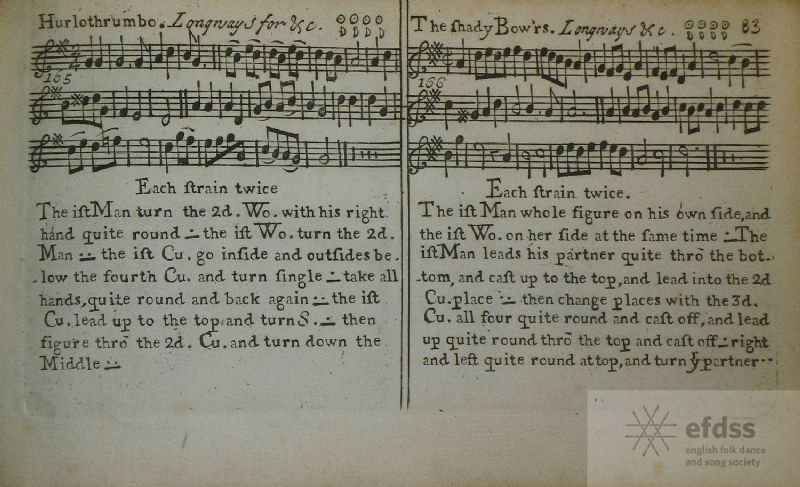 Hurlothrumbo. Longways for &c.
165
Each ſtrain twice
The iſt Man turn the 2d. Wo. with his right
hand quite round ∸ the iſt Wo. turn the 2d.
Man ∸ the iſt Cu. go inſide and outſides be-
low the fourth Cu. and turn ſingle ∸ take all
hands, quite round and back again ∸ the iſt
Cu. lead up to the top, and turn S. ∸ then
figure thrō the 2d. Cu. and turn down the
Middle ∸
The ſhady Bow'rs. Longways &c. 83
166
Each ſtrain twice.
The iſt Man whole figure on his own ſide, and
the iſt Wo. on her ſide at the ſame time ∸ The
iſt Man leads his partner quite thrō the bot-
tom, and caſt up to the top, and lead into the 2d
Cu. place ∸ then change places with the 3d.
Cu. all four quite round and caſt off, and lead
up quite round thrō the top and caſt off ∸ right
and left quite round at top, and turn ẙ partner
efdss
english folk dance
and song society